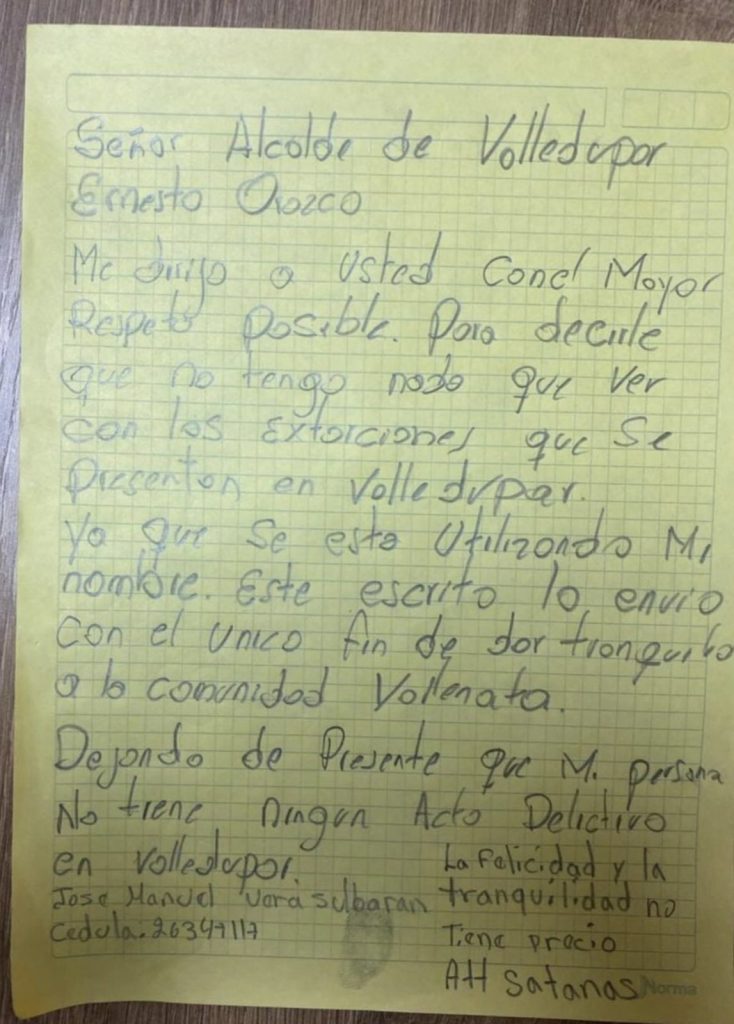 Señor Alcalde de Valledupar
Ernesto Orozco
Me dirijo a usted Con el Mayor
Respeto posible. Para decirle
que no tengo nada que ver
con las Extorciones que Se
Presentan en Valledupar.
Ya que Se esta Utilizando Mi
nombre. Este escrito lo envio
con el unico fin de dar tranquila
a la comunidad Vallenata.
Dejando de Presente que Mi persona
No tiene ningun Acto Delictivo
en Valledupar.
Jose Manuel Vera Sulbaran
Cedula. 26347117
La Felicidad y la
tranquilidad no
Tiene precio
Att Satanas
Norma